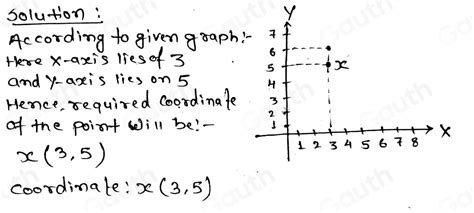 Solution :
According to given graph:-
Here X-axis lies of 3
and Y-axis lies on 5
Hence, required coordinate
of the point will be:-
x(3,5)
coordinate: x(3,5)
Y
7
6
5 x
4
3
2
1
1 2 3 4 5 6 7 8 X
Gauth